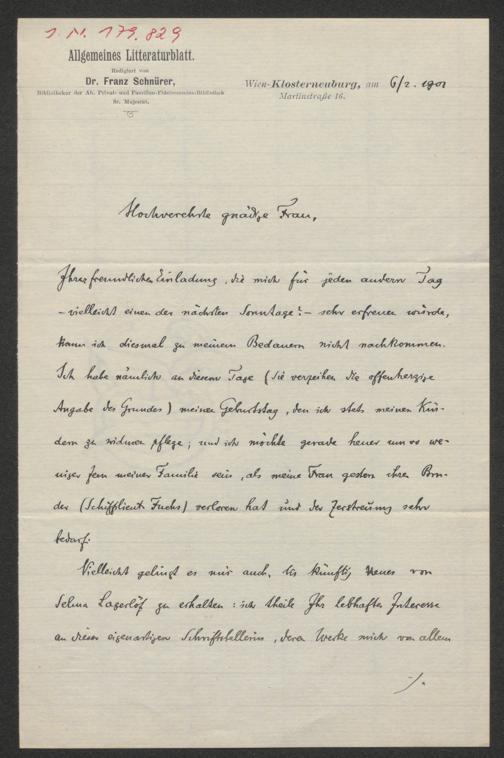 I. N. 179.829
Allgemeines Litteraturblatt.
Redigiert von
Dr. Franz Schnürer,
Bibliothekar der Ah. Privat- und Familien-Fideicommiss-Bibliothek
Sr. Majestät.
Wien-Klosterneuburg, am 6/2. 1901
Martinstraße 16.
Hochverehrte gnädige Frau,
Ihrer freundlichen Einladung, die mich für jeden andern Tag
– vielleicht einen der nächsten Sonntage? – sehr erfreuen würde,
kann ich diesmal zu meinem Bedauern nicht nachkommen.
Ich habe nämlich an diesem Tage (Sie verzeihen die offenherzige
Angabe des Grundes) meinen Geburtstag, den ich stets meinen Kin-
dern zu widmen pflege; und ich möchte gerade heuer um so we-
niger fern meiner Familie sein, als meine Frau gestern ihren Bru-
der (Schiffslieut. Fuchs) verloren hat und der Zerstreuung sehr
bedarf.
Vielleicht gelingt es mir auch, bis künftig Neues von
Selma Lagerlöf zu erhalten: ich theile Ihr lebhaftes Interesse
an dieser eigenartigen Schriftstellerin, deren Werke mich vor allem
./.